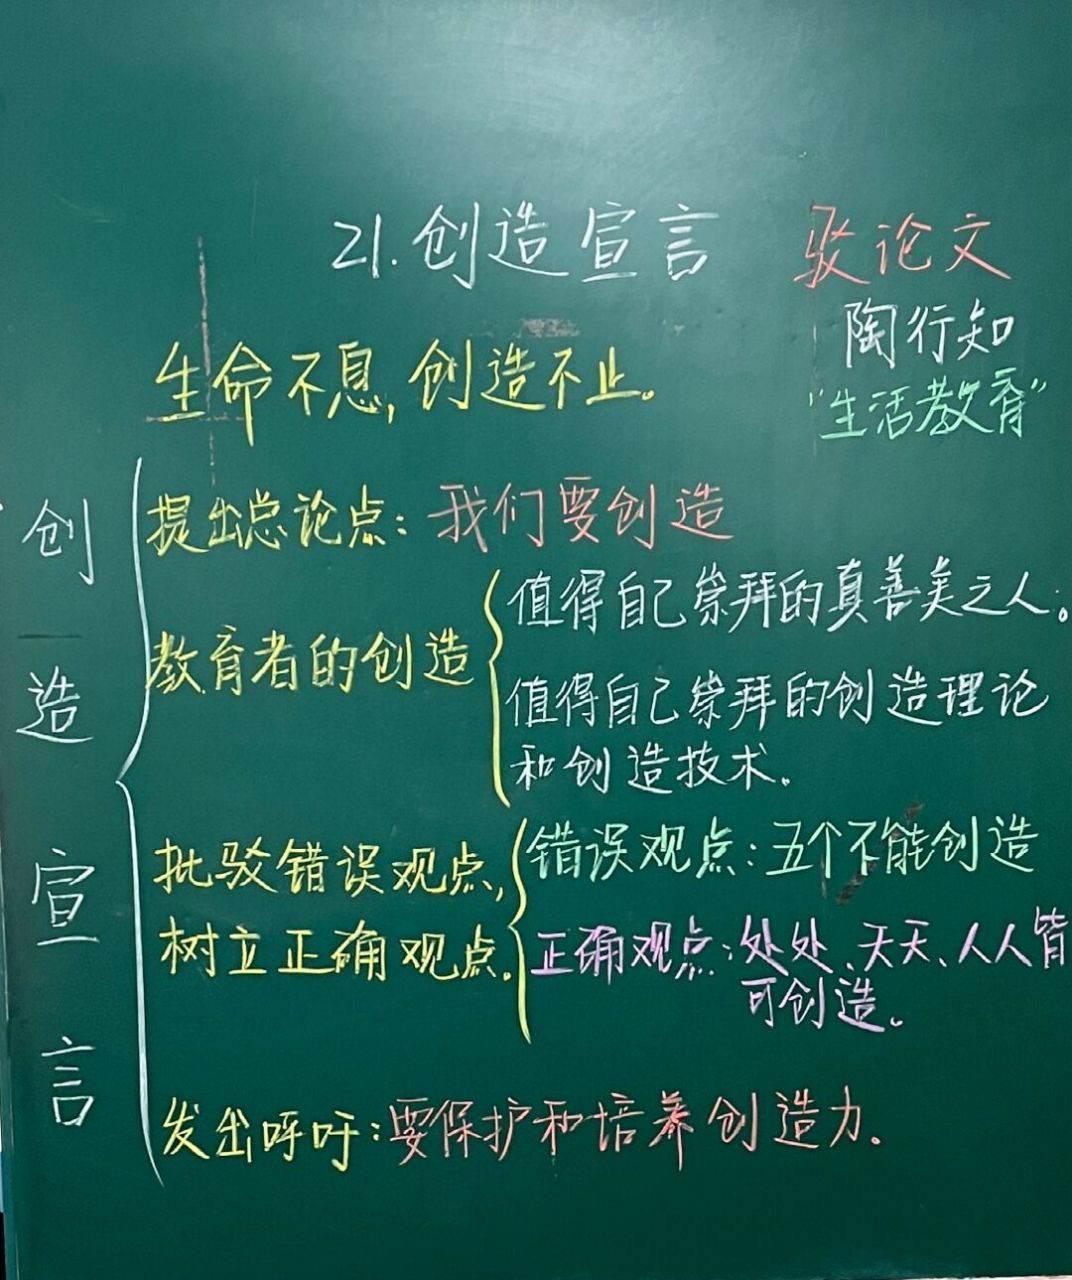 21.创造宣言 驳论文
陶行知
生命不息,创造不止。
"生活教育"
创造宣言
提出总论点:我们要创造
教育者的创造
值得自己崇拜的真善美之人。
值得自己崇拜的创造理论
和创造技术。
批驳错误观点,
树立正确观点.
错误观点:五个不能创造
正确观点:处处、天天、人人皆
可创造。
发出呼吁:要保护和培养创造力.